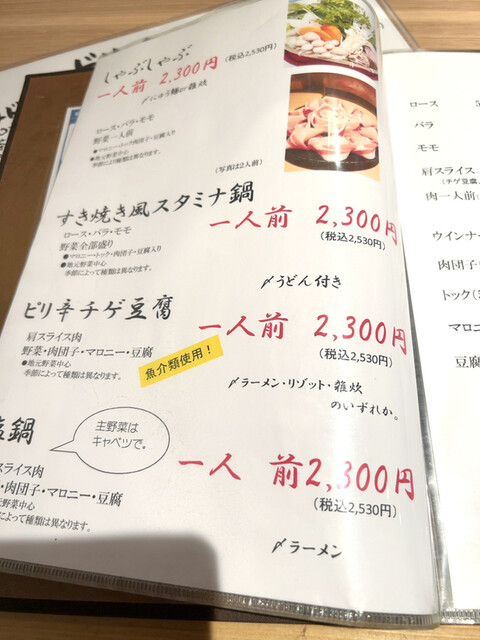 しゃぶしゃぶ
一人前 2,300円
(税込2,530円)
〆にゅう麺or雑炊
ロース・バラ・モモ
野菜一人前
●マロニー・トック・肉団子・豆腐入り
●地元野菜中心
季節によって種類は異なります。
(写真は2人前)
すき焼き風スタミナ鍋
一人前 2,300円
(税込2,530円)
ロース・バラ・モモ
野菜全部盛り
●マロニー・トック・肉団子・豆腐入り
●地元野菜中心
季節によって種類は異なります。
〆うどん付き
ピリ辛チゲ豆腐
一人前 2,300円
(税込2,530円)
肩スライス肉
野菜・肉団子・マロニー・豆腐
●地元野菜中心
季節によって種類は異なります。
魚介類使用！
〆ラーメン・リゾット・雑炊
のいずれか。
鍋
主野菜は
キャベツで。
一人前2,300円
(税込2,530円)
スライス肉
・肉団子・マロニー・豆腐
野菜中心
によって種類は異なります。
〆ラーメン
ロース
バラ
モモ
肩スライス
(チゲ豆腐、
肉一人前
ウインナ
肉団子
トック
マロニ
豆腐